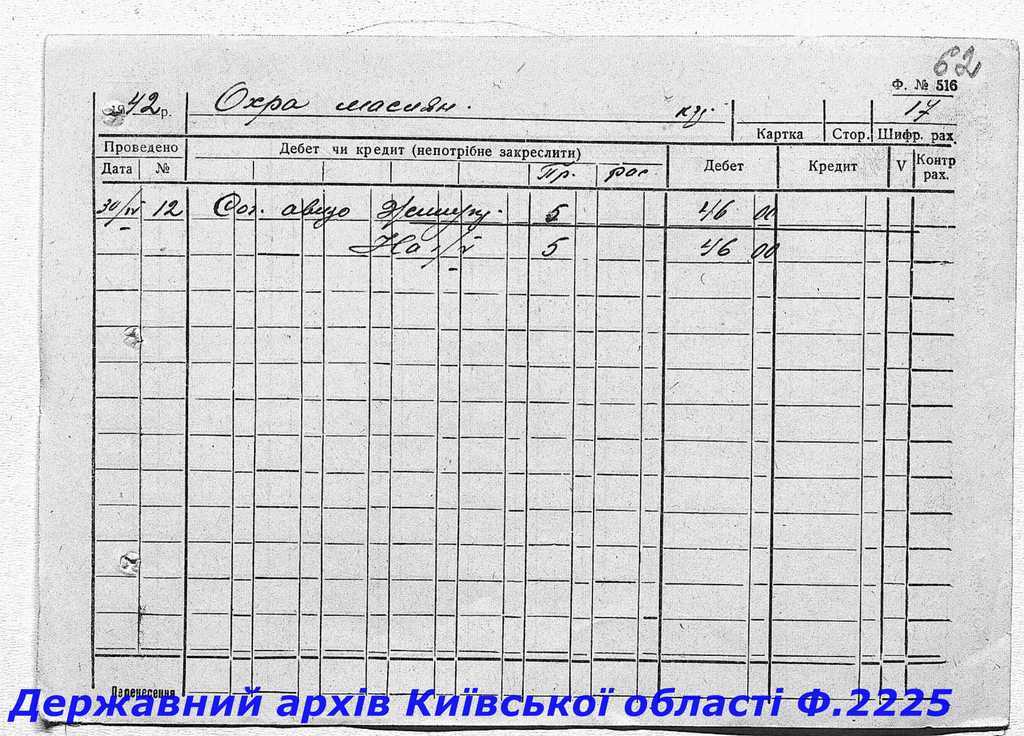 62
Ф. № 516
1942 р. Охра маслян. кг. 17
Картка Стор. Шифр. рах.
Проведено Дебет чи кредит (непотрібне закреслити) Дебет Кредит V Контр рах.
Дата № Пр. рас.
30/IV 12 авизо 5 46 00
На 1/V 5 46 00
Перенесення
Державний архів Київської області Ф.2225